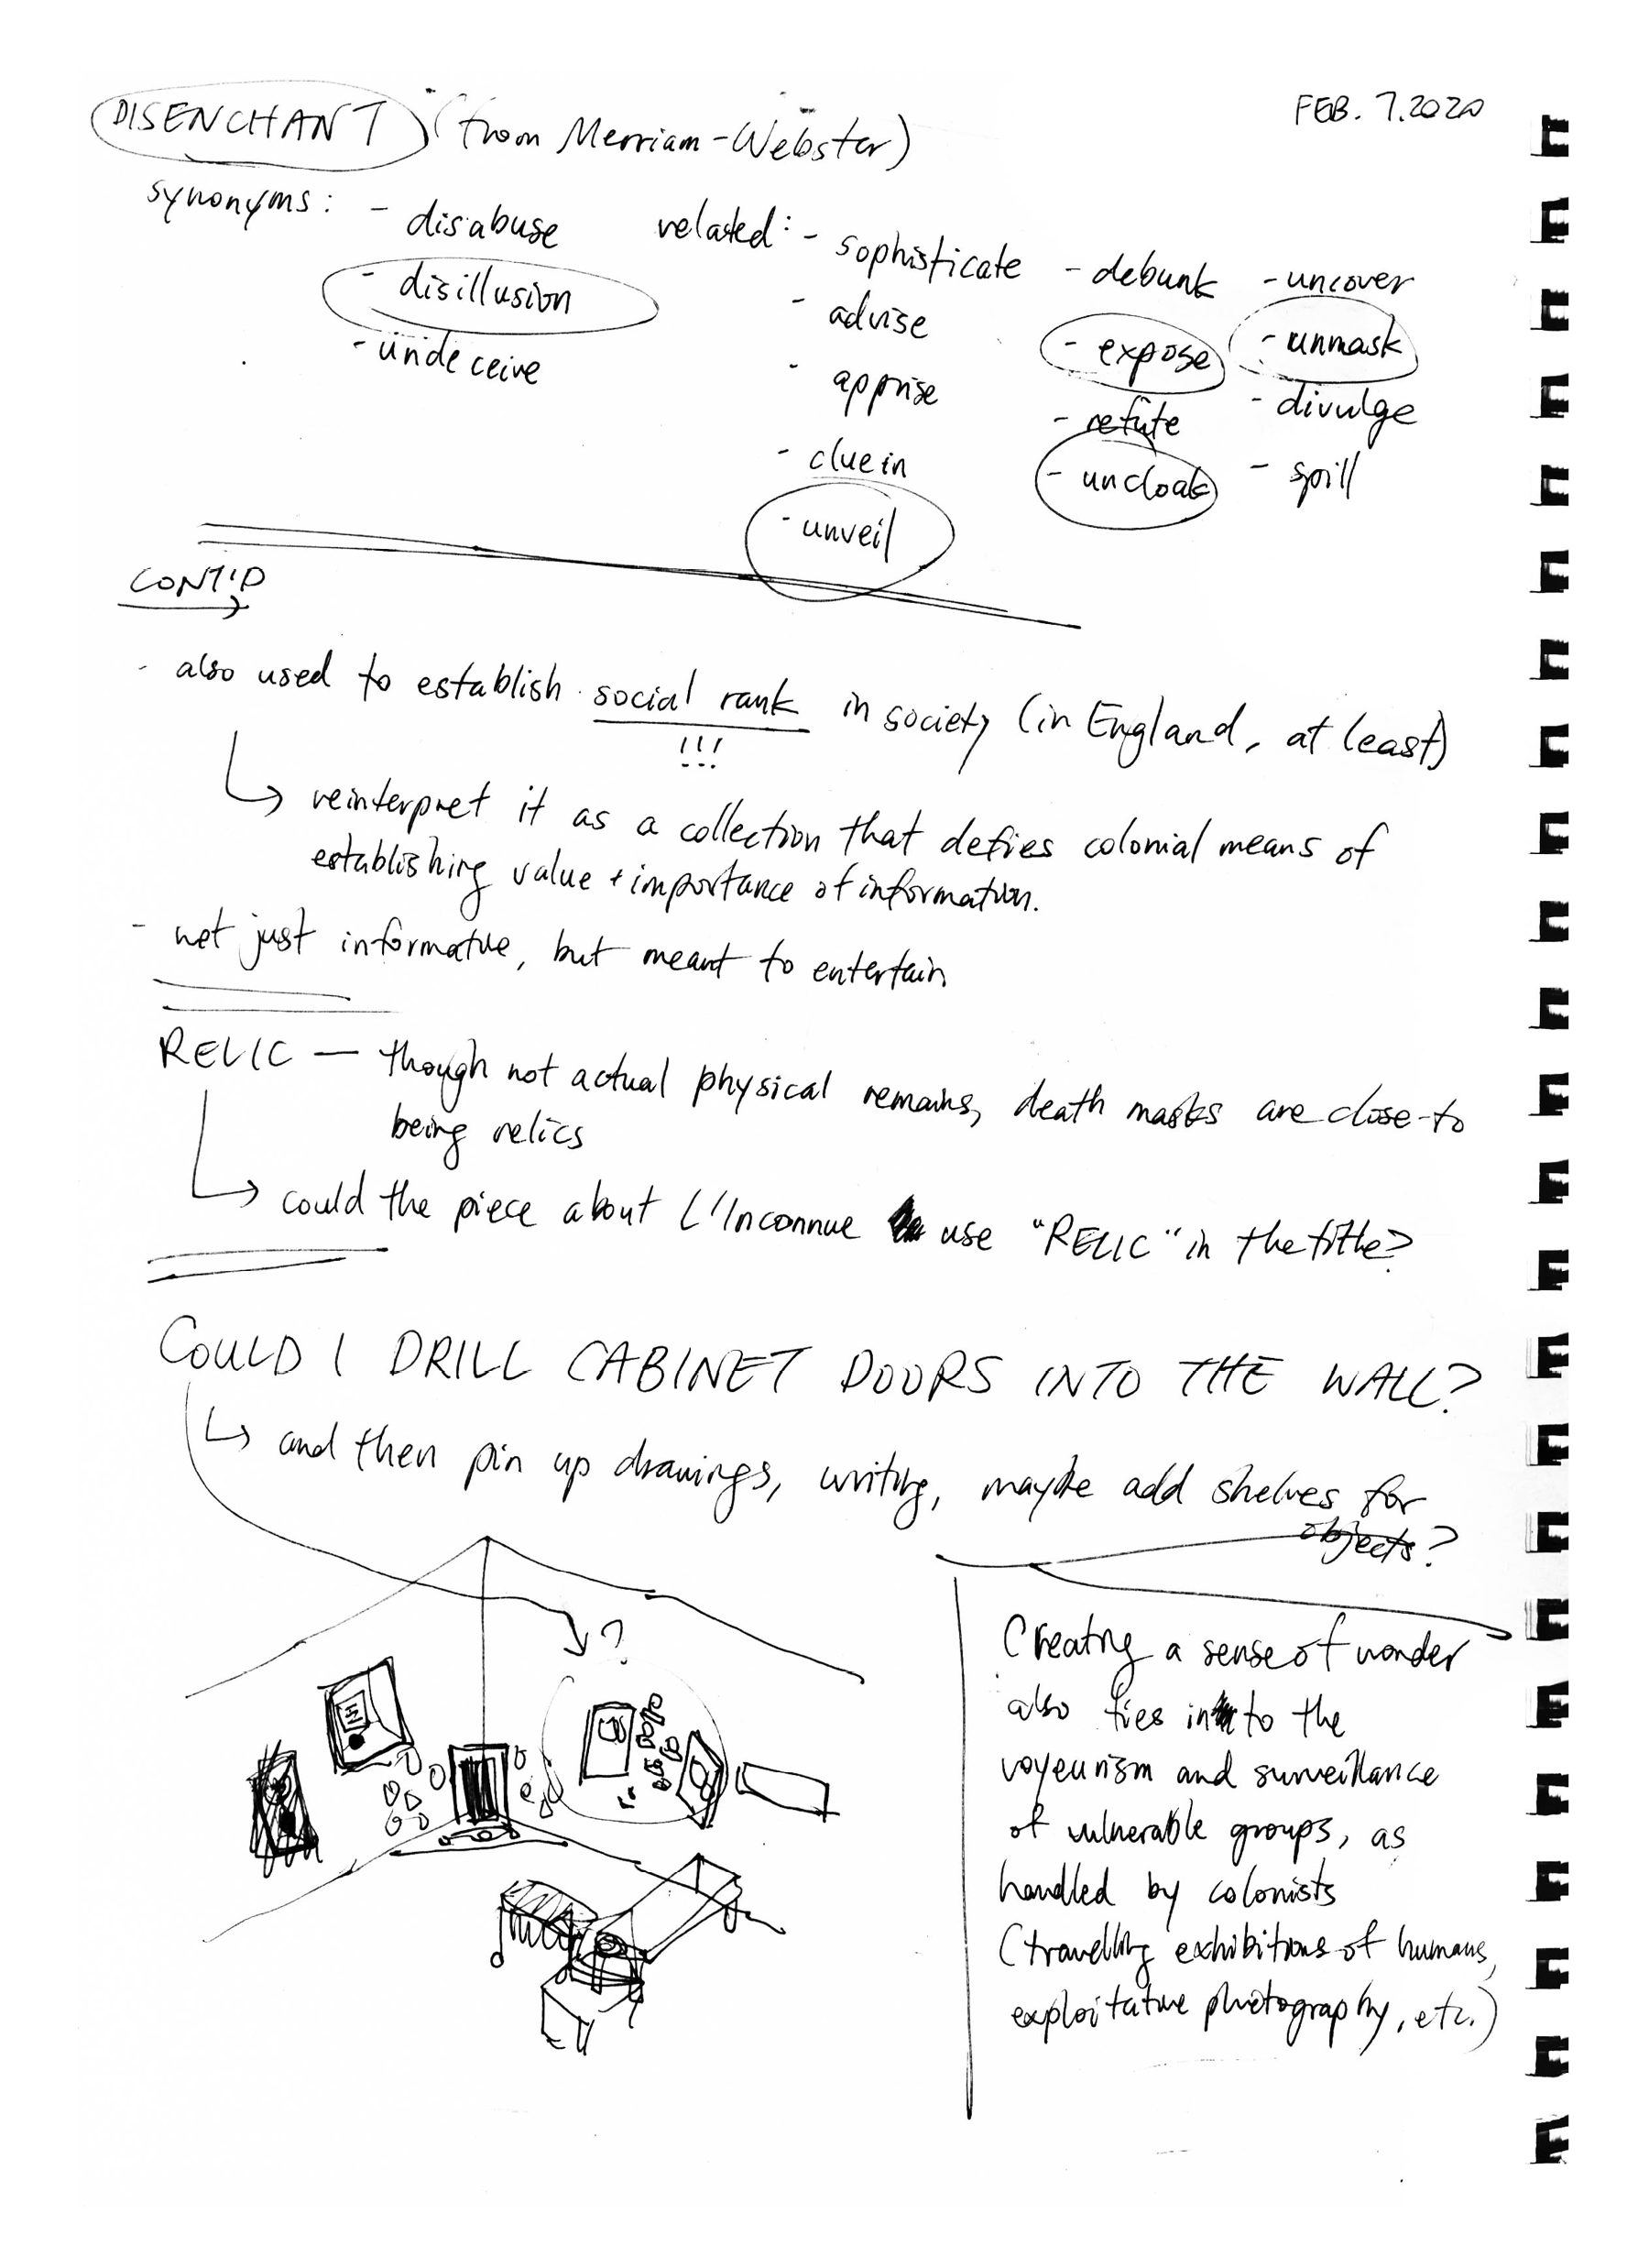 FEB. 7. 2020
DISENCHANT (from Merriam-Webster)
synonyms: - disabuse
- disillusion
- undeceive
related: - sophisticate
- advise
- apprise
- clue in
- unveil
- debunk
- expose
- refute
- uncloak
- uncover
- unmask
- divulge
- spill
CONT'D
- also used to establish social rank in society (in England, at least)
!!!
reinterpret it as a collection that defies colonial means of
establishing value + importance of information.
- not just informative, but meant to entertain
RELIC — though not actual physical remains, death masks are close to
being relics
could the piece about L'Inconnue use "RELIC" in the title?
COULD I DRILL CABINET DOORS INTO THE WALL?
and then pin up drawings, writing, maybe add shelves for
objects?
?
Creating a sense of wonder
also ties into the
voyeurism and surveillance
of vulnerable groups, as
handled by colonists
(travelling exhibitions of humans,
exploitative photography, etc.)